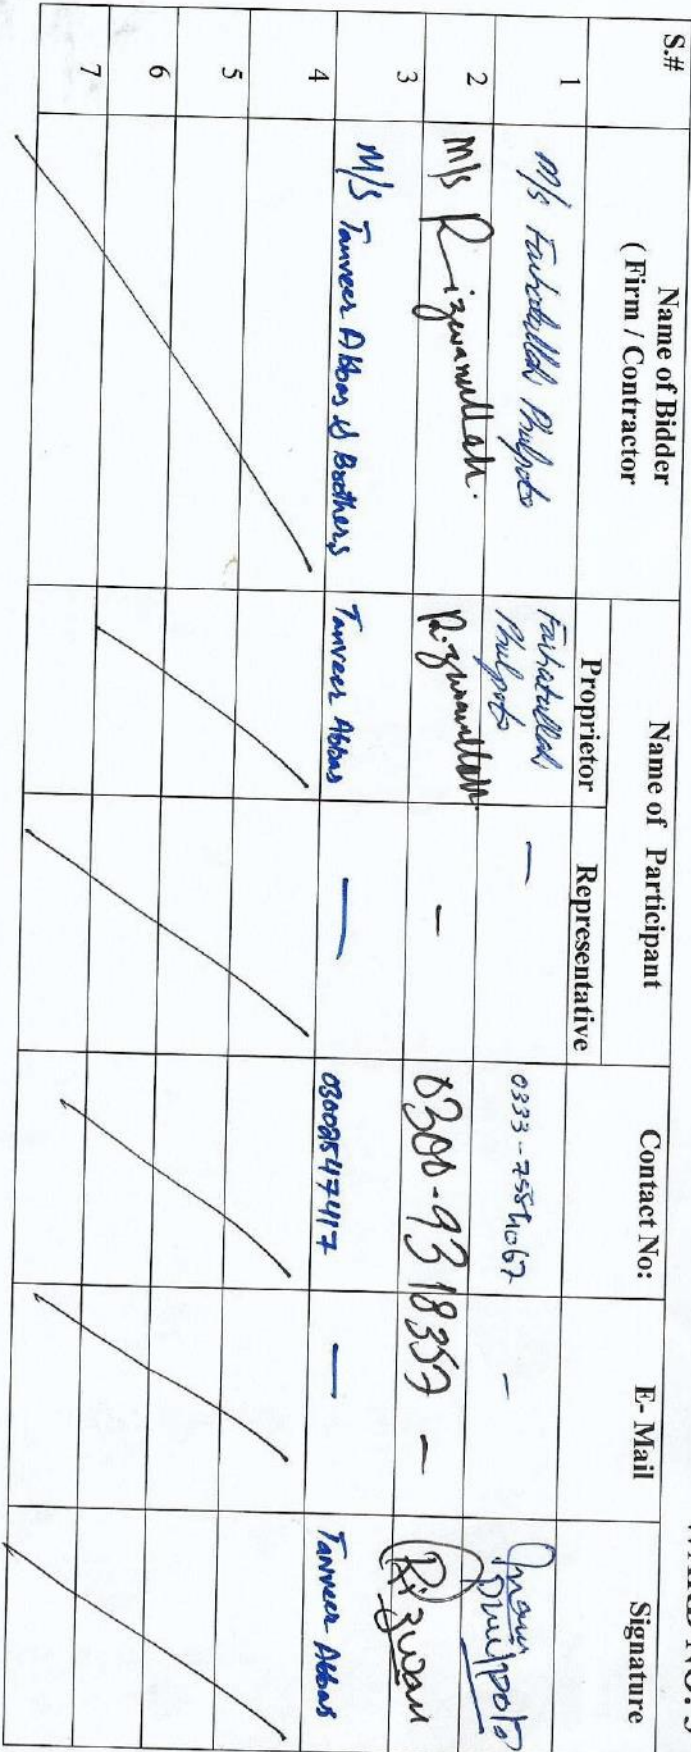 S.#
Name of Bidder
( Firm / Contractor
Name of Participant
Proprietor
Representative
Contact No:
E- Mail
Signature
1
M/s Farhatullah Phulpoto
Farhatullah
Phulpoto
—
0333-7584067
-
Phulpoto
2
M/s Rizwanullah.
Rizwanullah.
-
0300-9318357
-
Rizwan
3
M/S Tanveer Abbas & Brothers
Tanveer Abbas
—
—
Tanveer Abbas
4
5
6
7